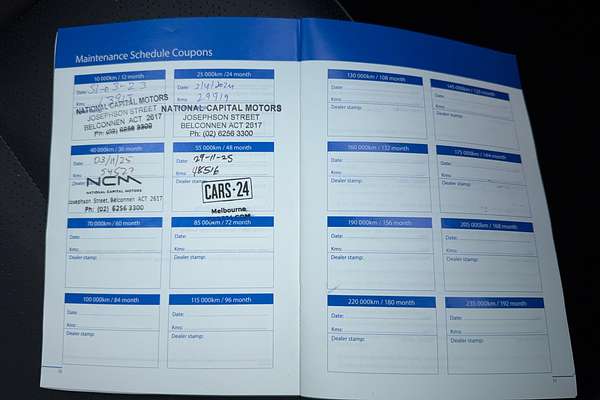 Maintenance Schedule Coupons
10 000km / 12 month
Date: 31-03-23
Kms:
NATIONAL CAPITAL MOTORS
JOSEPHSON STREET
BELCONNEN ACT 2617
Ph: (02) 6256 3300
25 000km /24 month
Date:
Kms: 29919
NATIONAL CAPITAL MOTORS
JOSEPHSON STREET
BELCONNEN ACT 2617
Ph: (02) 6256 3300
40 000km / 36 month
Date: 03/11/25
Kms:
NCM
NATIONAL CAPITAL MOTORS
Josephson Street, Belconnen ACT 2617
Ph: (02) 6256 3300
55 000km / 48 month
Date: 29-11-25
Kms: 48516
CARS·24
Melbourne
70 000km / 60 month
Date:
Kms:
Dealer stamp:
85 000km / 72 month
Date:
Kms:
Dealer stamp:
100 000km / 84 month
Date:
Kms:
Dealer stamp:
115 000km / 96 month
Date:
Kms:
Dealer stamp:
130 000km / 108 month
Date:
Kms:
Dealer stamp:
145 000km / 120 month
Date:
Kms:
Dealer stamp:
160 000km / 132 month
Date:
Kms:
Dealer stamp:
175 000km / 144 month
Date:
Kms:
Dealer stamp:
190 000km / 156 month
Date:
Kms:
Dealer stamp:
205 000km / 168 month
Date:
Kms:
Dealer stamp:
220 000km / 180 month
Date:
Kms:
Dealer stamp:
235 000km / 192 month
Date:
Kms:
Dealer stamp: